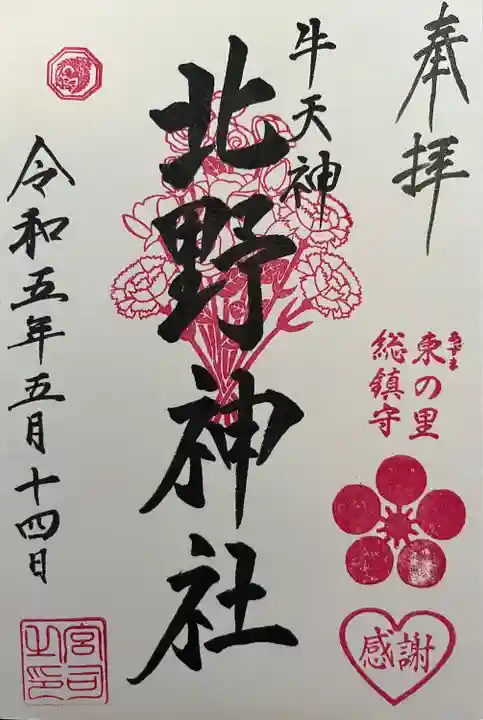 奉拝
あづま
東の里
総鎮守
感謝
牛天神
北野神社
令和五年五月十四日
宮司
之印